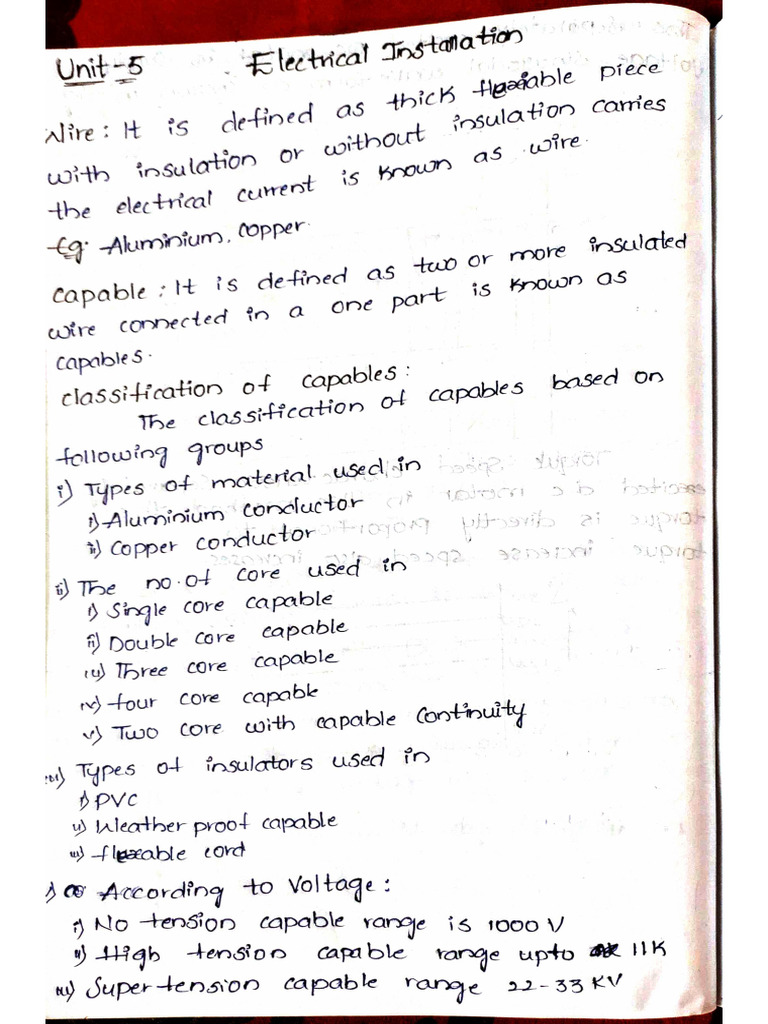 Unit-5 Electrical Installation
Wire: It is defined as thick flexiable piece
with insulation or without insulation carries
the electrical current is known as wire.
Eg. Aluminium, Copper.
Capable: It is defined as two or more insulated
wire connected in a one part is known as
capables.
Classification of capables:
The classification of capables based on
following groups
i) Types of material used in
i) Aluminium conductor
ii) Copper conductor
ii) The no.of core used in
i) Single core capable
ii) Double core capable
iii) Three core capable
iv) four core capable
v) Two core with capable continuity
iii) Types of insulators used in
i) PVC
ii) Weather proof capable
iii) flexable cord
According to voltage:
i) No tension capable range is 1000 V
ii) High tension capable range upto 11K
iii) Super tension capable range 22-33 KV